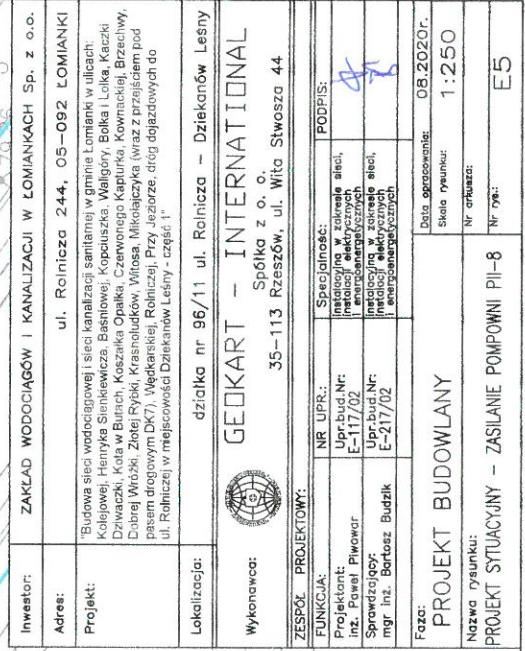 Inwestor: ZAKŁAD WODOCIĄGÓW I KANALIZACJI W ŁOMIANKACH Sp. z o.o.
Adres: ul. Rolnicza 244, 05-092 ŁOMIANKI
Projekt: "Budowa sieci wodociągowej i sieci kanalizacji sanitarnej w gminie Łomianki w ulicach:
Kolejowej, Henryka Sienkiewicza, Baśniowej, Kopciuszka, Waligóry, Bolka i Lolka, Kaczki
Dziwaczki, Kota w Butach, Koszałka Opałka, Czerwonego Kapturka, Kownackiej, Brzechwy,
Dobrej Wróżki, Złotej Rybki, Krasnoludków, Witosa, Mikołajczyka (wraz z przejściem pod
pasem drogowym DK7), Wędkarskiej, Rolniczej, Przy Jeziorze, dróg dojazdowych do
ul. Rolniczej w miejscowości Dziekanów Leśny - część 1"
Lokalizacja: działka nr 96/11 ul. Rolnicza - Dziekanów Leśny
Wykonawca: GEOKART - INTERNATIONAL
Spółka z o. o.
35-113 Rzeszów, ul. Wita Stwosza 44
ZESPÓŁ PROJEKTOWY:
FUNKCJA: NR UPR.: Specjalność: PODPIS:
Projektant: Upr.bud.Nr: instalacyjna w zakresie sieci,
inż. Paweł Piwowar E-117/02 instalacji elektrycznych
i energoenergetycznych
Sprawdzający: Upr.bud.Nr: instalacyjna w zakresie sieci,
mgr inż. Bartosz Budzik E-217/02 instalacji elektrycznych
i energoenergetycznych
Faza: Data opracowania: 08.2020r.
PROJEKT BUDOWLANY Skala rysunku: 1:250
Nr arkusza:
Nazwa rysunku: Nr rys.:
PROJEKT SYTUACYJNY - ZASILANIE POMPOWNI PII-8 E5